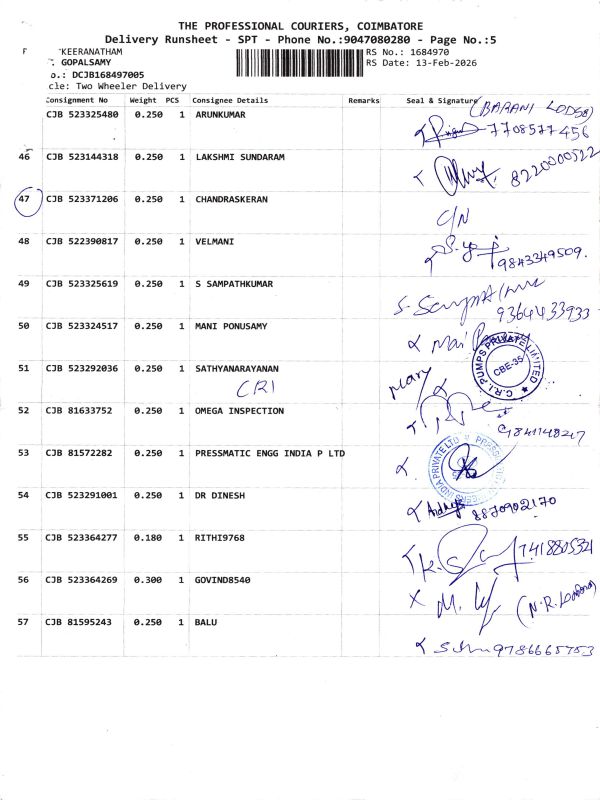 THE PROFESSIONAL COURIERS, COIMBATORE
Delivery Runsheet - SPT - Phone No.:9047080280 - Page No.:5
KEERANATHAM
RS No.: 1684970
GOPALSAMY
RS Date: 13-Feb-2026
o.: DCJB168497005
cle: Two Wheeler Delivery
Consignment No Weight PCS Consignee Details Remarks Seal & Signature
(BARANI LODGE)
CJB 523325480 0.250 1 ARUNKUMAR
7708577456
46 CJB 523144318 0.250 1 LAKSHMI SUNDARAM
8220000522
47 CJB 523371206 0.250 1 CHANDRASKERAN
C/N
48 CJB 522390817 0.250 1 VELMANI
9843349509.
49 CJB 523325619 0.250 1 S SAMPATHKUMAR
9364433933
50 CJB 523324517 0.250 1 MANI PONUSAMY
C.R.I PUMPS PRIVATE LIMITED
CBE-35
51 CJB 523292036 0.250 1 SATHYANARAYANAN
CRI
52 CJB 81633752 0.250 1 OMEGA INSPECTION
53 CJB 81572282 0.250 1 PRESSMATIC ENGG INDIA P LTD
INDIA PRIVATE LTD
54 CJB 523291001 0.250 1 DR DINESH
8870902170
55 CJB 523364277 0.180 1 RITHI9768
7418805321
56 CJB 523364269 0.300 1 GOVIND8540
57 CJB 81595243 0.250 1 BALU
9786665753